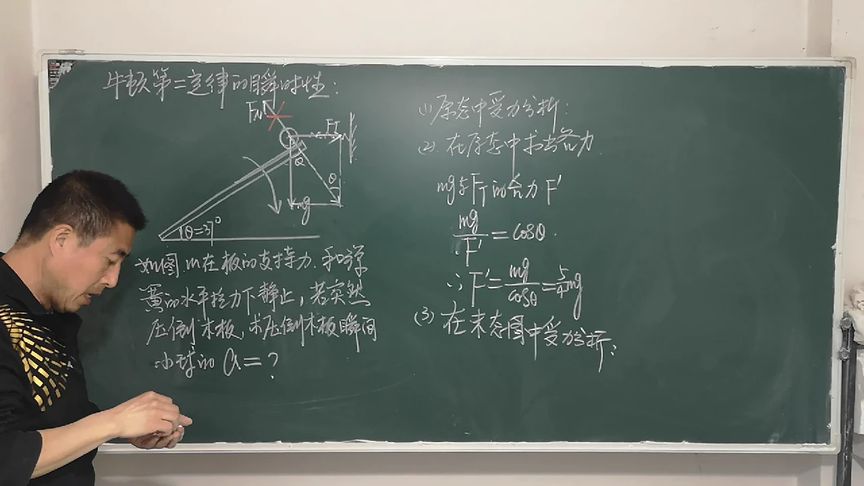 牛顿第二定律的瞬时性:
FN
FT
θ
θ
mg
θ=37°
如图.m在板的支持力.和弹
簧的水平拉力下静止,若突然
压倒木板,求压倒木板瞬间
小球的a=?
(1)原态中受力分析:
(2)在原态中求出合力
mg与FT的合力F'
mg/F'=cosθ.
∴F'=mg/cosθ=5/4mg
(3)在末态图中受力分析: